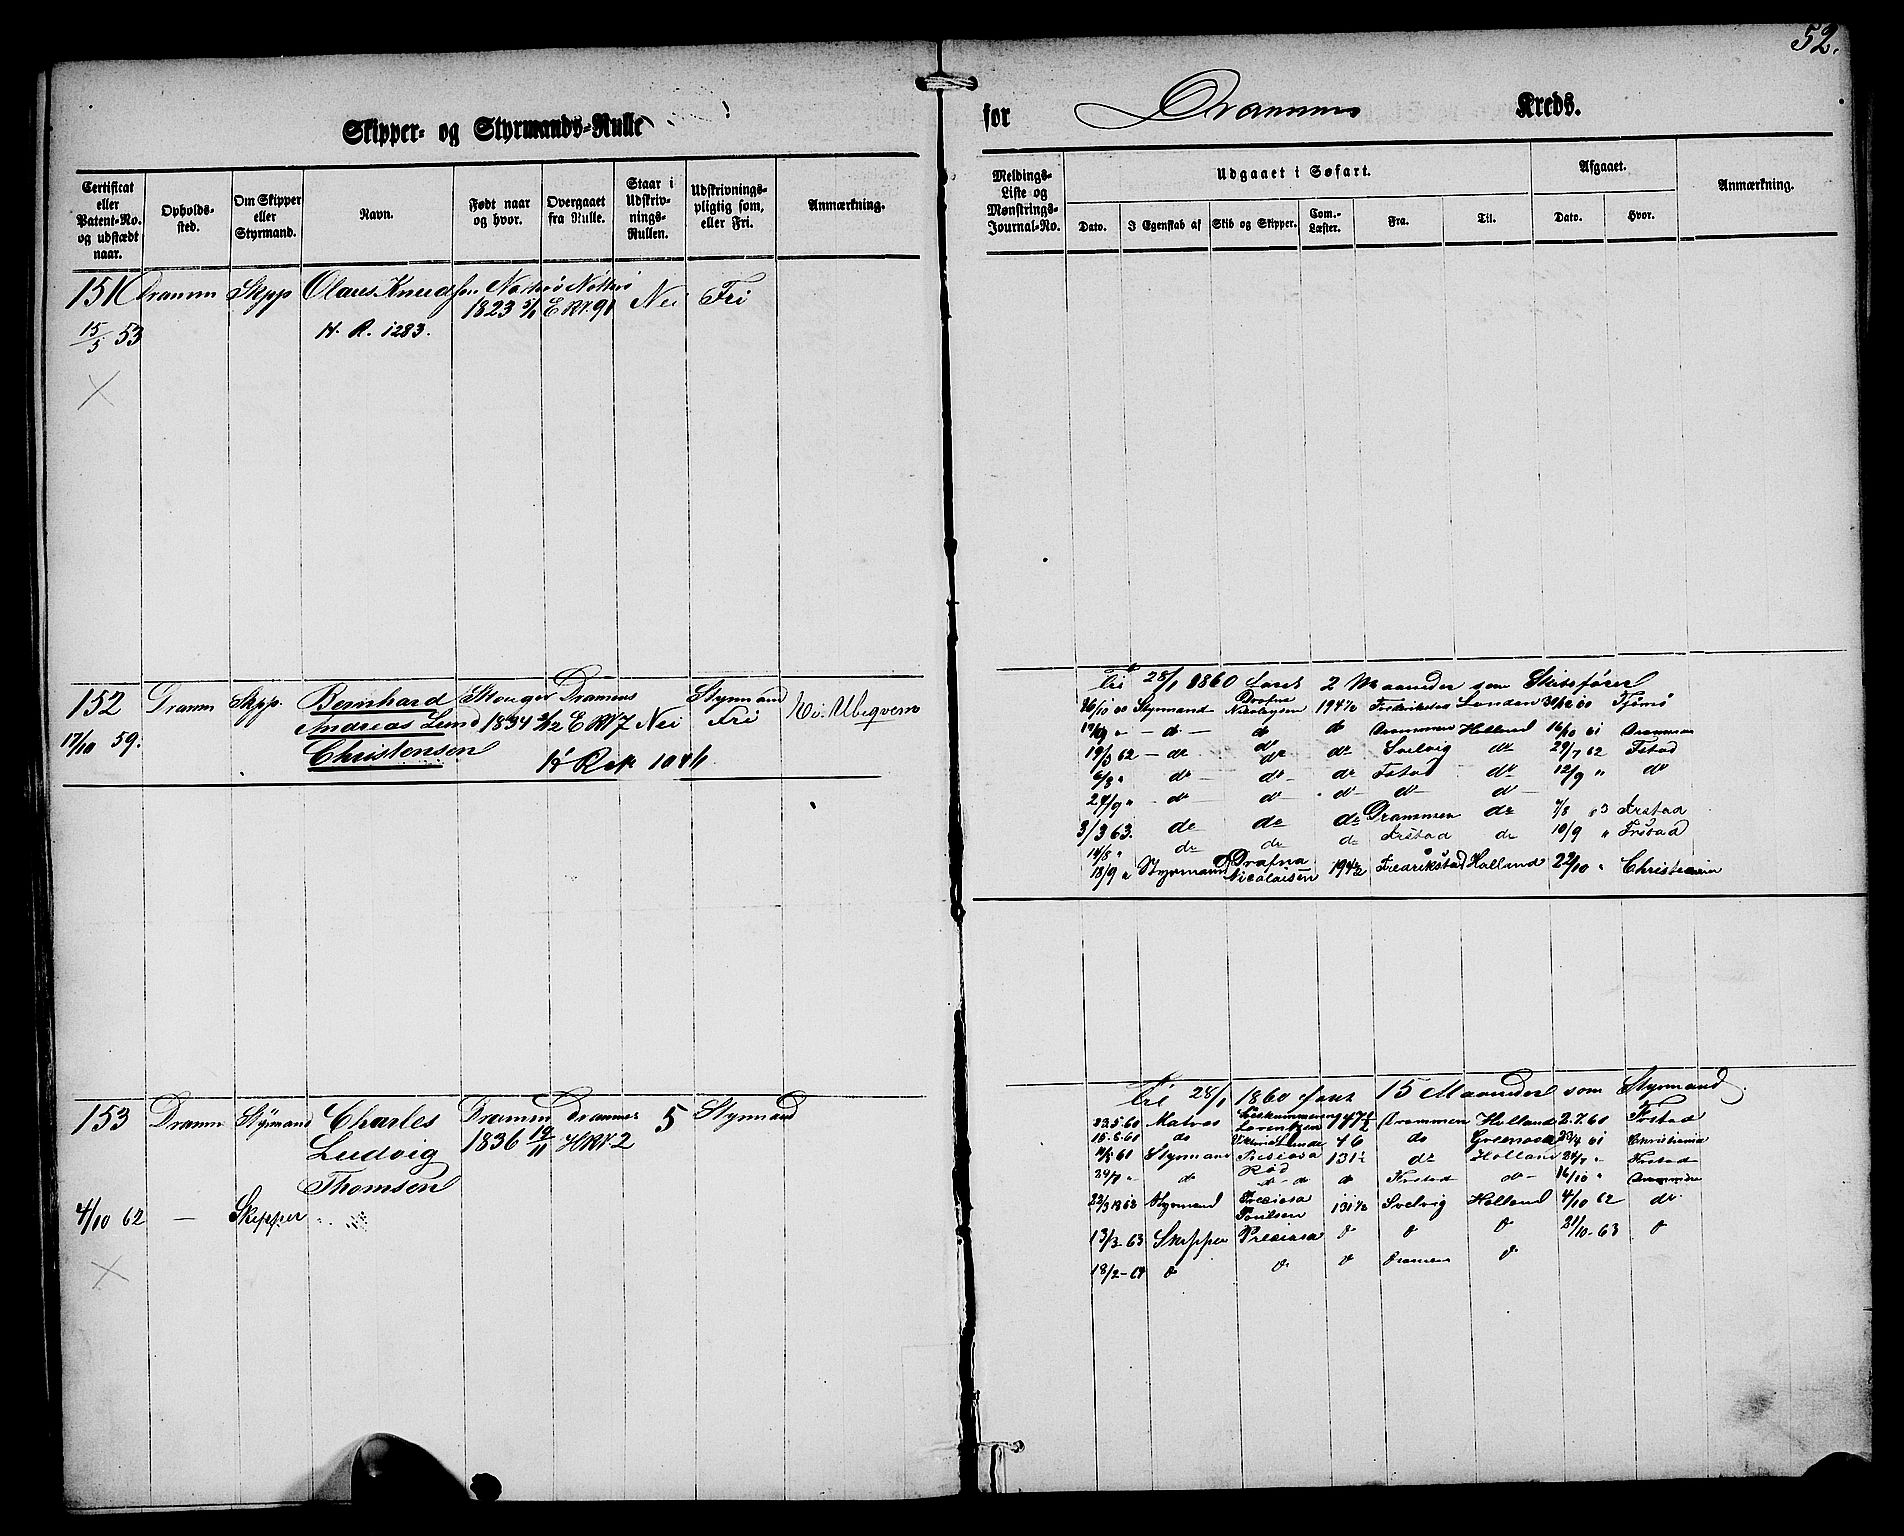 52.
Skipper- og Styrmands-Rulle
for Drammens Kreds.
Certificat eller Patent-No. og udstædt naar.
Opholds-sted.
Om Skipper eller Styrmand.
Navn.
Født naar og hvor.
Overgaaet fra Rulle.
Staar i Udskriv-nings-Rullen.
Udskrivnings-pligtig som, eller Fri.
Anmærkning.
Meldings-Liste og Mønstrings-Journal-No.
Udgaaet i Søfart.
Dato.
I Egenskab af
Skib og Skipper.
Com.-Læster.
Fra.
Til.
Afgaaet.
Dato.
Hvor.
Anmærkning.
151 Dramm Skpp Olaus Knudsen Nøtterø
1823 5/1 E.R.N. 91 Nei Fri
15/5 53 H. R. 1283.
152 Dramm Skpp. Bernhard Skouger Dramens Styrmand
Andreas Lund 1834 2/12 E RN 7 Nei Fri
17/10 59. Christensen
1046
Til 28/1 1860 faret 2 Maaneder som Skibsfører
26/10 60 Styrmand Drafna Nicolaysen 194½ Fredrikstad London 30/12 60 Tjømø
do do do Drammen Holland 16/10 61 Drammen
19/3 62 do do do Svelvig do 29/7 62 Fstad
6/8 " do do do Fstad do 12/9 " do
27/9 " do do do do do
3/3 63. do do do Drammen do 7/8 63 Frstad
14/8 " do do do Frstad do 10/9 " Frstad
18/9 " Styrmand Drafna Nicolaisen 194½ Fredrikstad Holland 22/10 " Christiania
153 Dramm Styrmand Charles Dramm Drammen 5 Styrmand
Ludvig 1836 19/11 HRN 2
Thomsen
4/10 62 — Skipper
Til 28/1 1860 faret 15 Maaneder som Styrmand
23.5.60 Matros Lorentzen 147½ Drammen Holland 2.7.60 Frstad
15.8.60 do Lunde 46 do 61 Christiania
61 Styrmand Presiosa Rød 131½ do Holland 24/7 " Frstad
29/7 " do do do Frstad do 16/10 " Drammen
22/3 1862 Styrmand Presiosa Poulsen 131½ Svelvig Holland 4/10 62 do
13/3-63 Skipper Presiosa do do do 21/10-63 do
18/2-64 do do do Dramen do